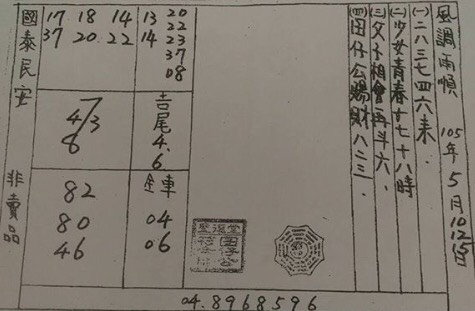 風調雨順 105年5月10 12 15
㈠二八三七四六來.
㈡少女青春十七十八時
㈢父子相會再斗六.
㈣田仔公賜財八二三.
20
13 22
14 23
37
08
17 18 14
37 20 22
吉尾
4.
6
4/3
6
金車
04
06
82
80
46
國泰民安
非賣品
04.8968596